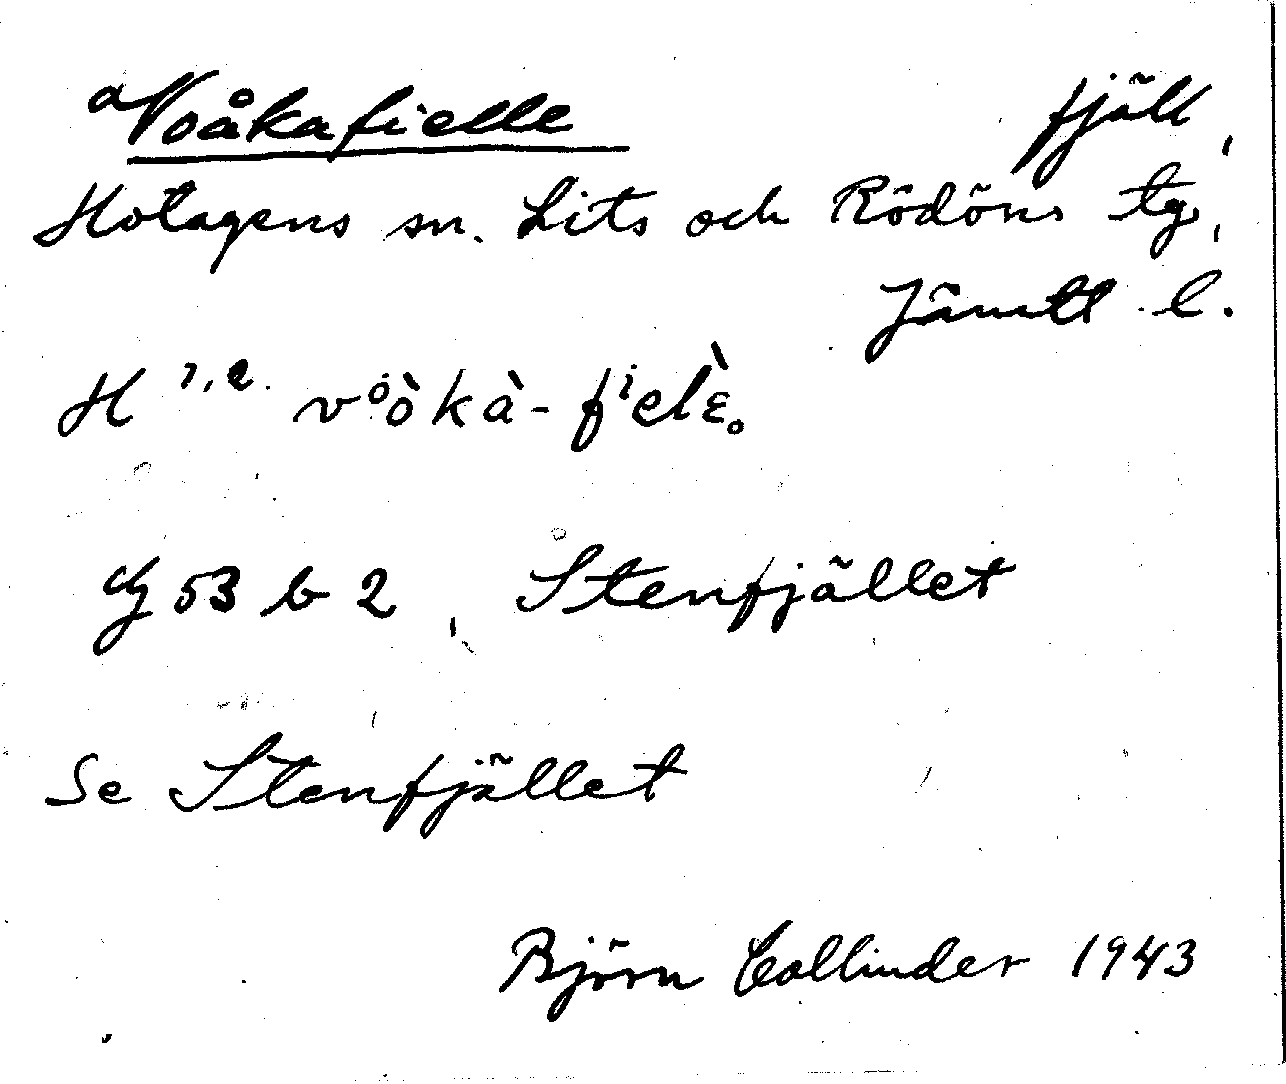 a Voåkafielle fjäll,
Hotagens sn. Lits och Rödöns tg,
Jämtl l.
H 1, 2. v°òkà-fⁱelὲ̥
G 53 b 2, Stenfjället
Se Stenfjället
Björn Collinder 1943